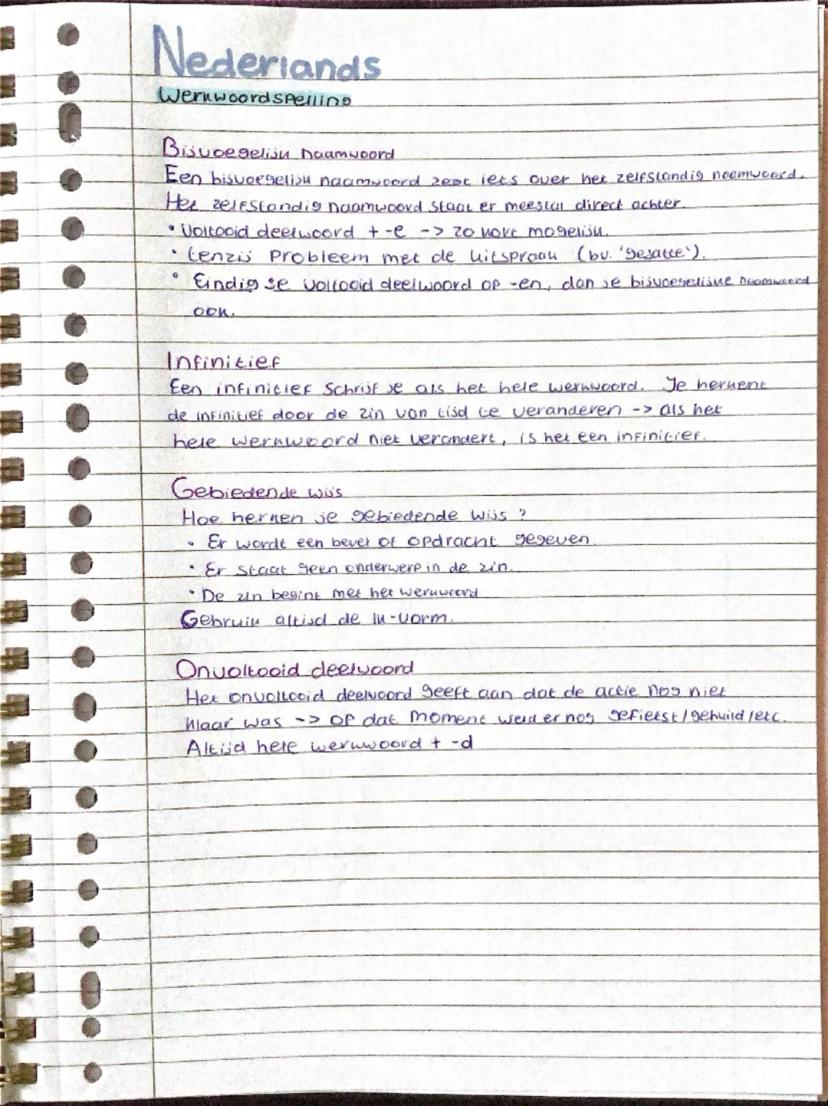 Nederlands
Werkwoordspelling
Bijvoegelijk naamwoord
Een bijvoegelijk naamwoord zegt iets over het zelfstandig naamwoord.
Het zelfstandig naamwoord staat er meestal direct achter.
• Voltooid deelwoord + -e -> zo kort mogelijk.
• Tenzij probleem met de uitspraak (bv. 'gejatte').
• Eindigt je voltooid deelwoord op -en, dan je bijvoegelijke naamwoord
ook.
Infinitief
Een infinitief schrijf je als het hele werkwoord. Je herkent
de infinitief door de zin van tijd te veranderen -> als het
hele werkwoord niet verandert, is het een infinitief.
Gebiedende wijs
Hoe herken je gebiedende wijs?
• Er wordt een bevel of opdracht gegeven
• Er staat geen onderwerp in de zin.
• De zin begint met het werkwoord
Gebruik altijd de ik-vorm.
Onvoltooid deelwoord
Het onvoltooid deelwoord geeft aan dat de actie nog niet
klaar was -> op dat moment werd er nog gefietst/gehuild/etc.
Altijd hele werkwoord + -d